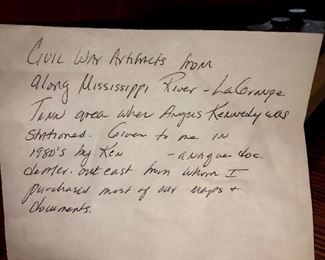 Civil War Artifacts from
along Mississippi River - LaGrange
Tenn area when Angus Kennedy was
stationed. Given to me in
1980's by Ken - antique doc.
dealer. out east from whom I
purchased most of our maps +
documents.